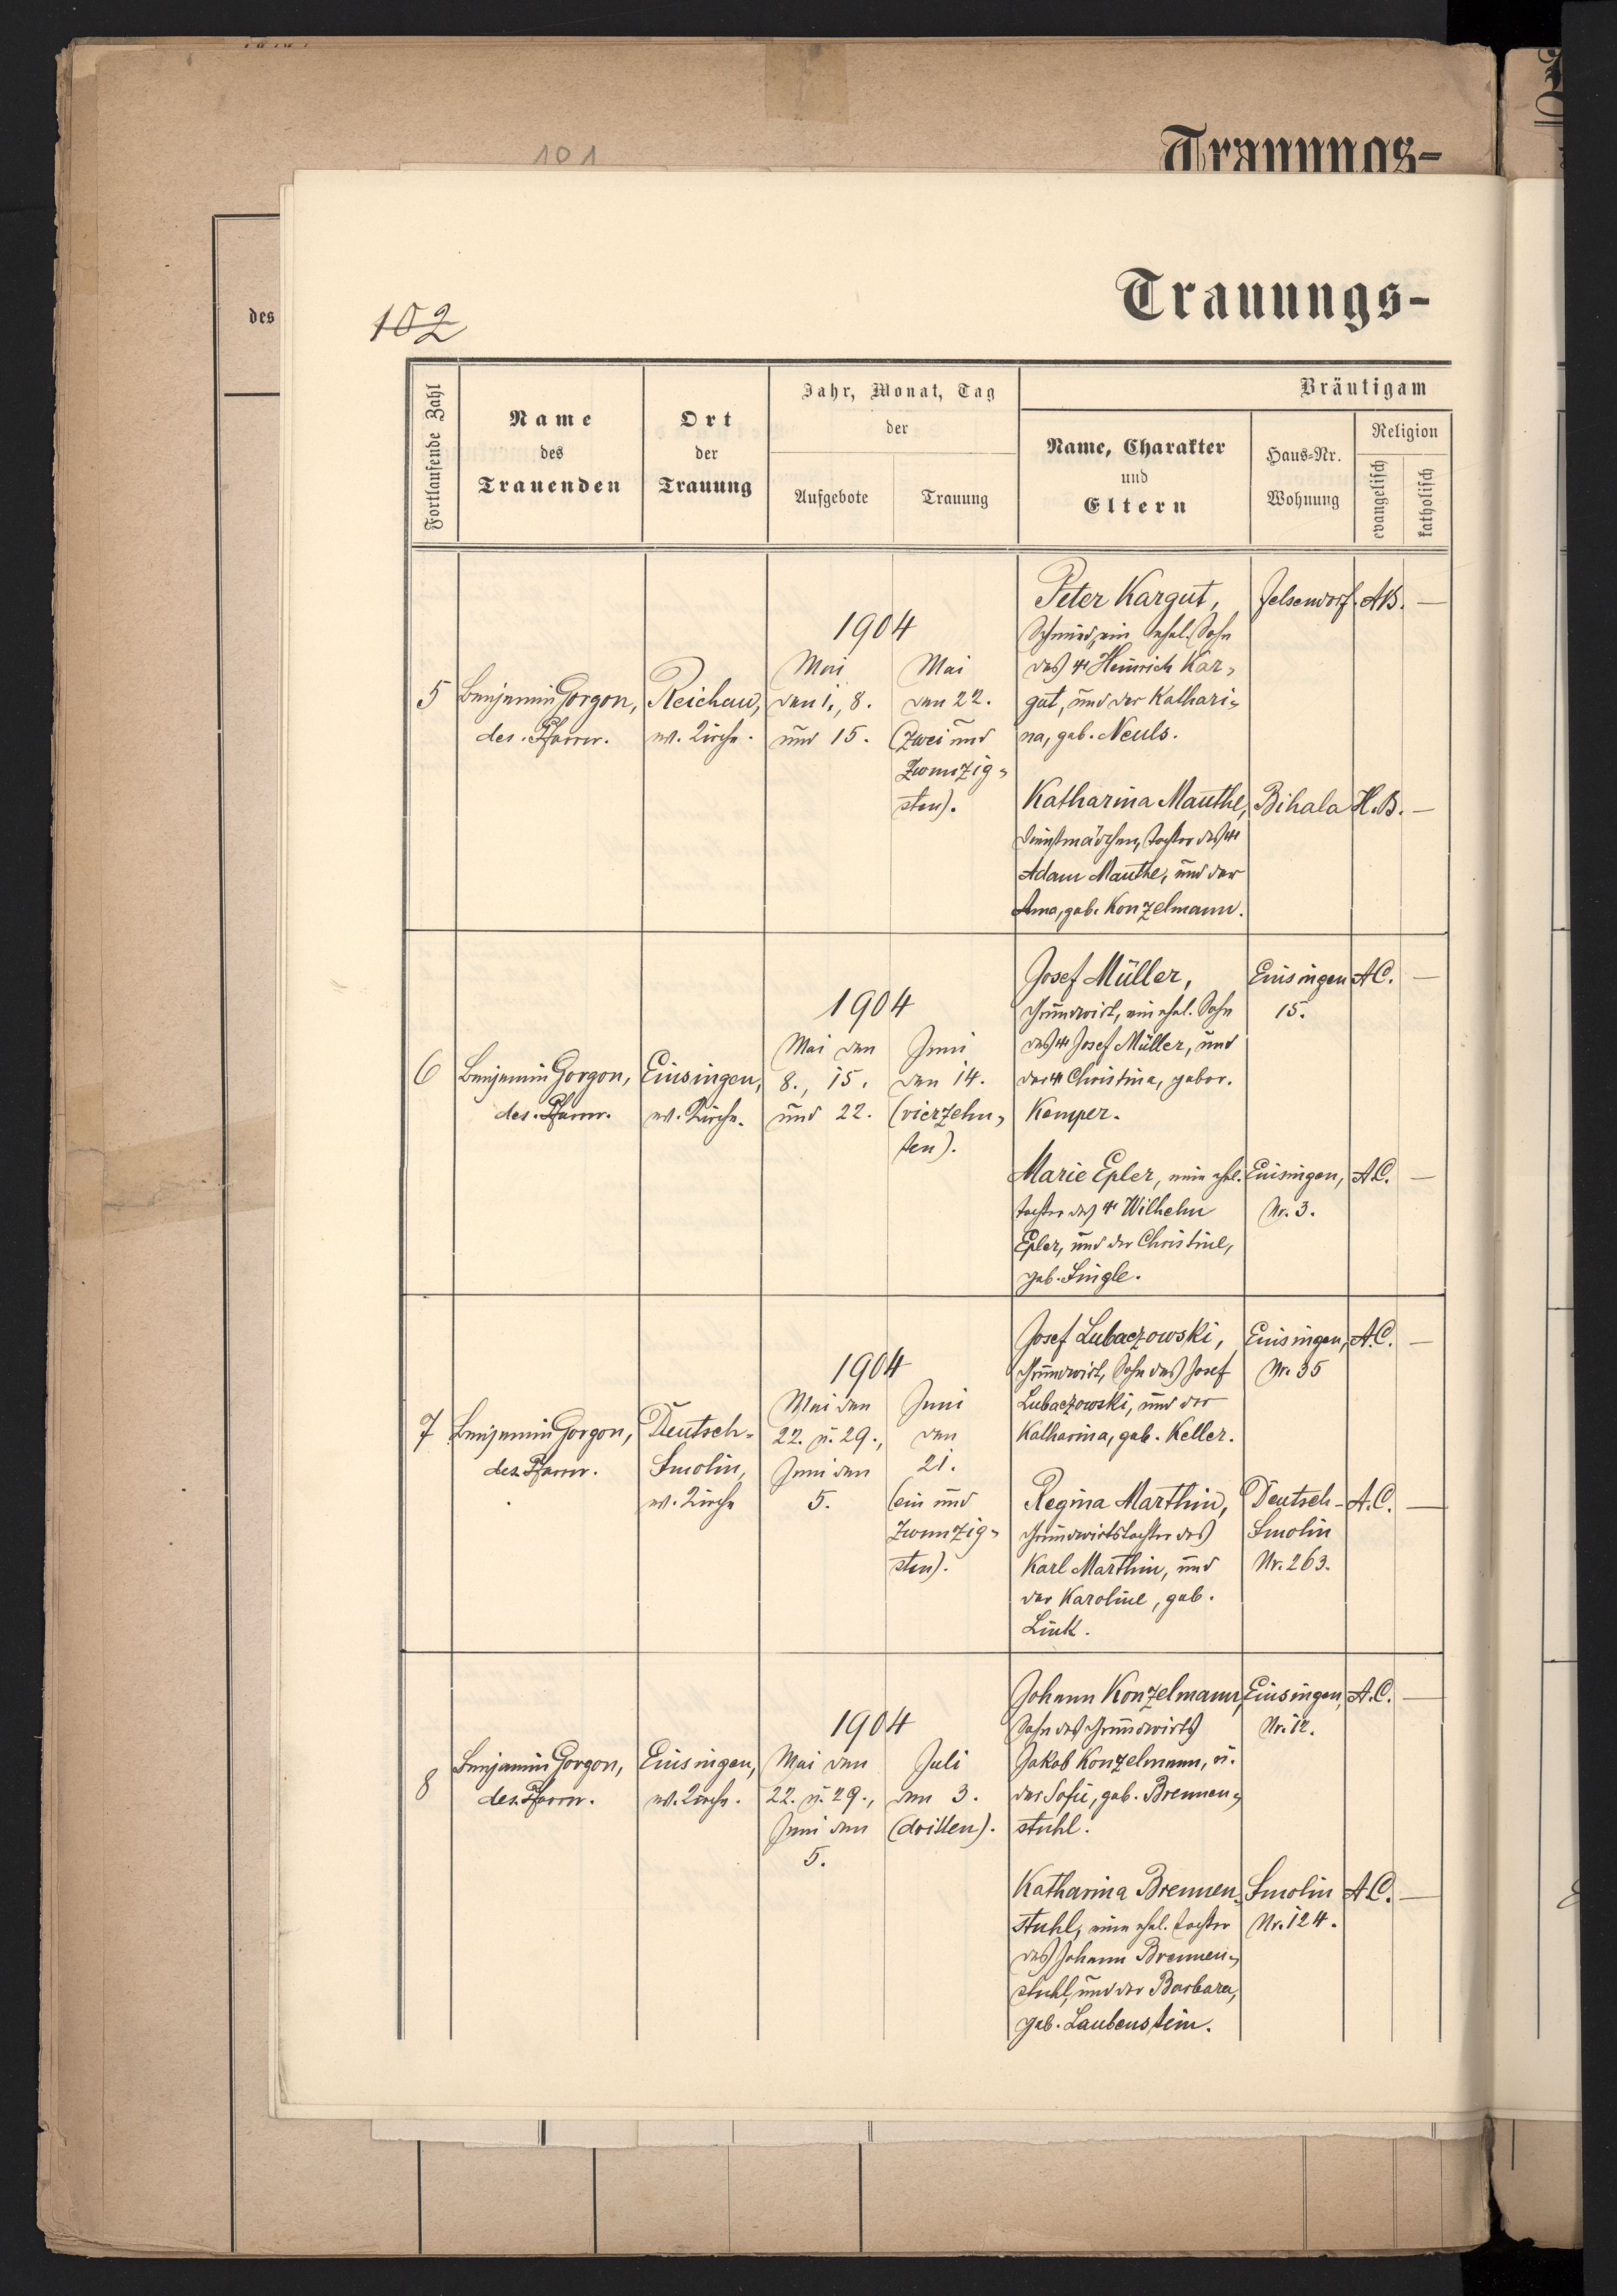 101
Trauungs-
des
102
Trauungs-
Fortlaufende Zahl
Name
des
Trauenden
Ort
der
Trauung
Jahr, Monat, Tag
der
Aufgebote
Trauung
Bräutigam
Name, Charakter
und
Eltern
Haus-Nr.
Wohnung
Religion
evangelisch
katholisch
5
Benjamin Gorgon,
des. Pfarrer.
Reichau,
ev. Kirche.
1904
Mai
den 1., 8.
und 15.
Mai
den 22.
(zwei und
zwanzig-
sten).
Peter Kargut,
Schmied, ein ehel. Sohn
des Heinrich Kar-
gut, und der Kathari-
na, geb. Neuls.
Felsendorf.
A.B.
—
Katharina Mauthe,
Dienstmädchen, Tochter des
Adam Mauthe, und der
Anna, geb. Konzelmann.
Bihala
H.B.
—
6
Benjamin Gorgon,
des. Pfarrer.
Einsingen,
ev. Kirche.
1904
Mai den
8., 15.
und 22.
Juni
den 14.
(vierzehn-
ten).
Josef Müller,
Grundwirt, ein ehel. Sohn
des Josef Müller, und
der Christina, gebor.
Kemper.
Einsingen
15.
A.C.
—
Marie Epler, eine ehel.
Tochter des Wilhelm
Epler, und der Christine,
geb. Single.
Einsingen,
Nr. 3.
A.C.
—
7
Benjamin Gorgon,
des. Pfarrer.
Deutsch-
Smolin,
ev. Kirche
1904
Mai den
22. u. 29.,
Juni den
5.
Juni
den
21.
(ein und
zwanzig-
sten).
Josef Lubaczowski,
Grundwirt, Sohn des Josef
Lubaczowski, und der
Katharina, geb. Keller.
Einsingen,
Nr. 35
A.C.
—
Regina Marthin,
Grundwirtstochter des
Karl Marthin, und
der Karoline, geb.
Link.
Deutsch-
Smolin
Nr. 263.
A.C.
—
8
Benjamin Gorgon,
des. Pfarrer.
Einsingen,
ev. Kirche.
1904
Mai den
22. u. 29.,
Juni den
5.
Juli
den 3.
(dritten).
Johann Konzelmann,
Sohn des Grundwirts
Jakob Konzelmann, u.
der Sofie, geb. Brennen-
stuhl.
Einsingen,
Nr. 12.
A.C.
—
Katharina Brennen-
stuhl, eine ehel. Tochter
des Johann Brennen-
stuhl, und der Barbara,
geb. Laubenstein.
Smolin
Nr. 124.
A.C.
—